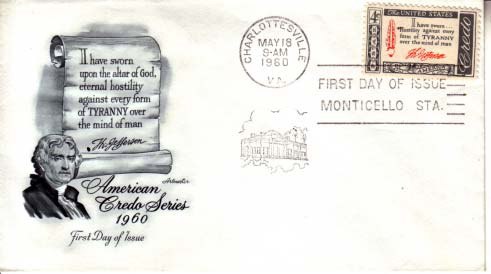 I have sworn
upon the altar of God,
eternal hostility
against every form
of TYRANNY over
the mind of man
Th. Jefferson
Artmaster
American
Credo Series
1960
First Day of Issue
CHARLOTTESVILLE
MAY 18
9-AM
1960
VA.
FIRST DAY OF ISSUE
MONTICELLO STA.
4¢
The UNITED STATES
I have sworn
Hostility against every
form of TYRANNY
over the mind of man
Th Jefferson
Credo